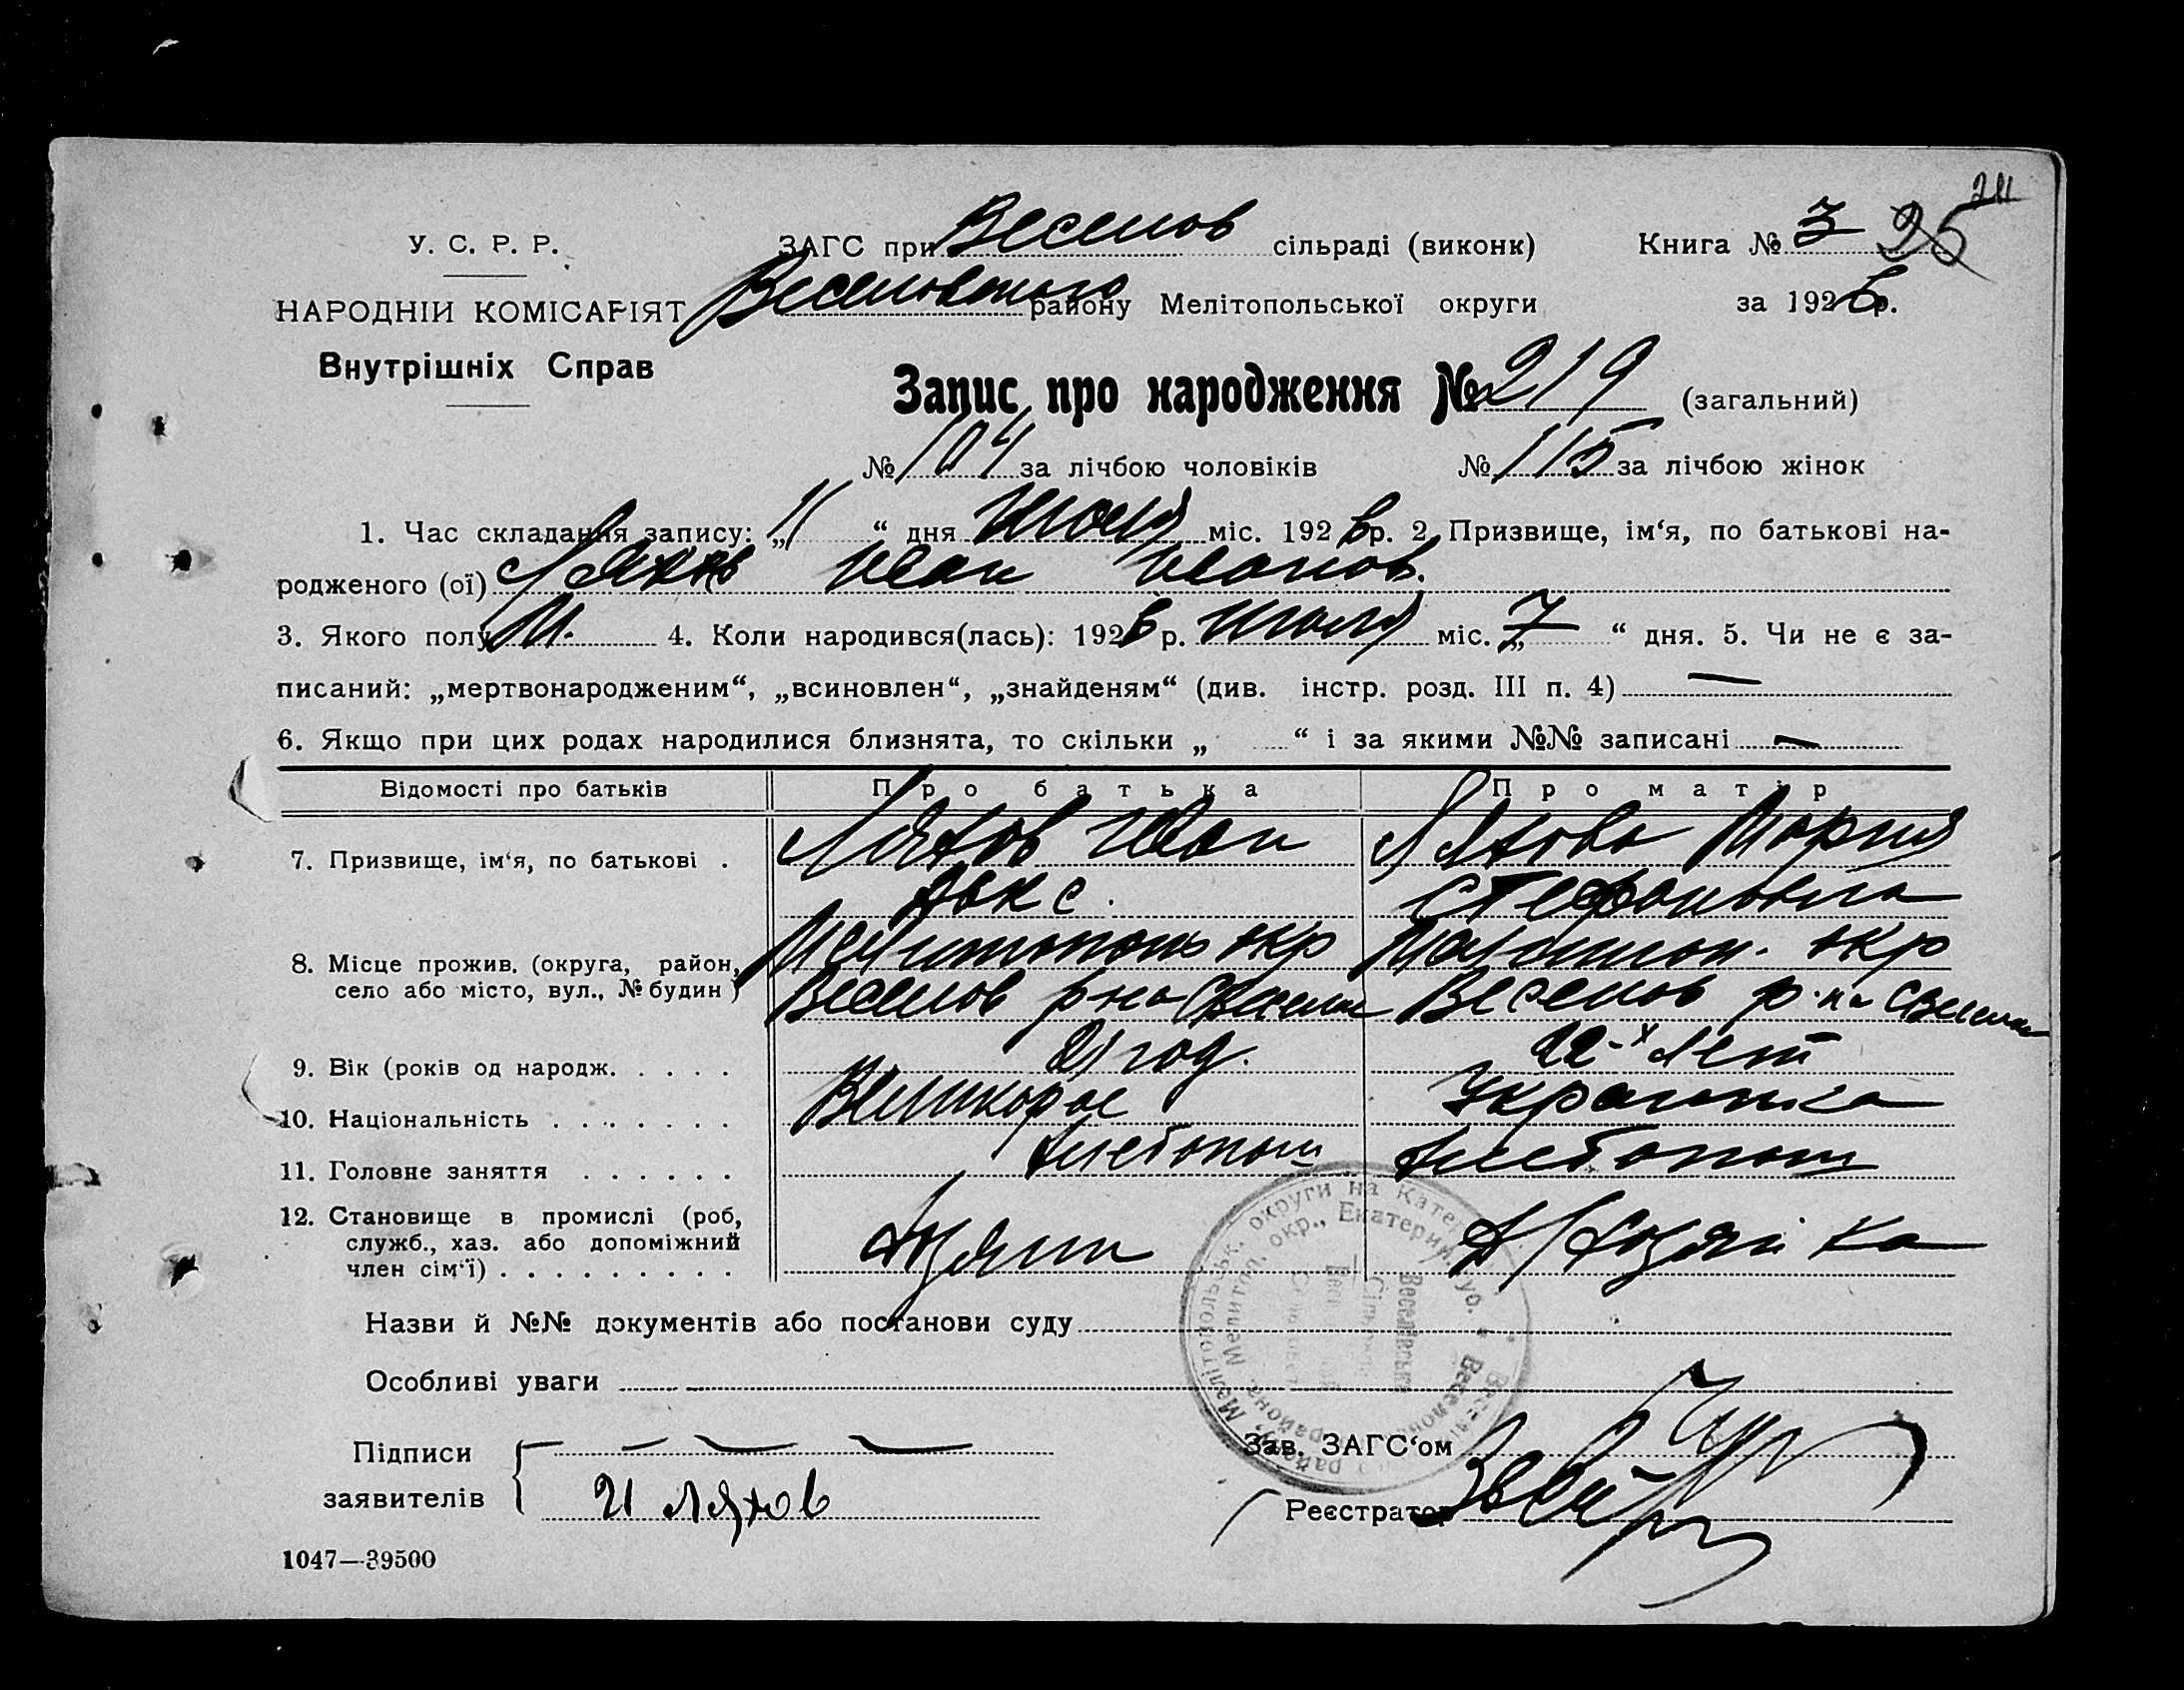 24
У. С. Р. Р. ЗАГС при Веселов сільраді (виконк) Книга № 3 25
НАРОДНІИ КОМІСАРІЯТ Веселовского району Мелітопольської округи за 1926 р.
Внутрішніх Справ
Запис про народження № 219 (загальний)
№ 104 за лічбою чоловіків № 115 за лічбою жінок
1. Час складання запису: „11 “ дня Июля міс. 1926 р. 2. Призвище, ім‘я, по батькові на-
родженого (ої) Ляхов Иван Иванов.
3. Якого полу М. 4. Коли народився(лась): 1926 р. Июля міс. „7 “ дня. 5. Чи не є за-
писаний: „мертвонародженим“, „всиновлен“, „знайденям“ (див. інстр. розд. III п. 4) —
6. Якщо при цих родах народилися близнята, то скільки „ “ і за якими №№ записані —
Відомості про батьків Про батька Про матір
7. Призвище, ім‘я, по батькові . Ляхов Иван Ляхова Мария
Авкс. Стефановна
8. Місце прожив. (округа, район, Мелитополь окр Мелитоп. окр
село або місто, вул., № будин ) Веселов р на С Веселое Веселов р-на С Веселое
9. Вік (років од народж. . . . . 21 год. 22-х лет
10. Національність . . . . . . . Великорос Украинка
11. Головне заняття . . . . . . Хлебопаш Хлебопаш
12. Становище в промислі (роб,
служб., хаз. або допоміжний Хозяин Д/Хозяйка
член сім‘ї) . . . . . . . . .
Назви й №№ документів або постанови суду
Особливі уваги
Підписи — — — Зав. ЗАГС‘ом
заявителів И Ляхов Реєстратор
1047—39500